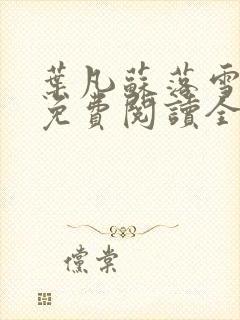 葉凡蘇落雪
免費閱讀全
儻棠